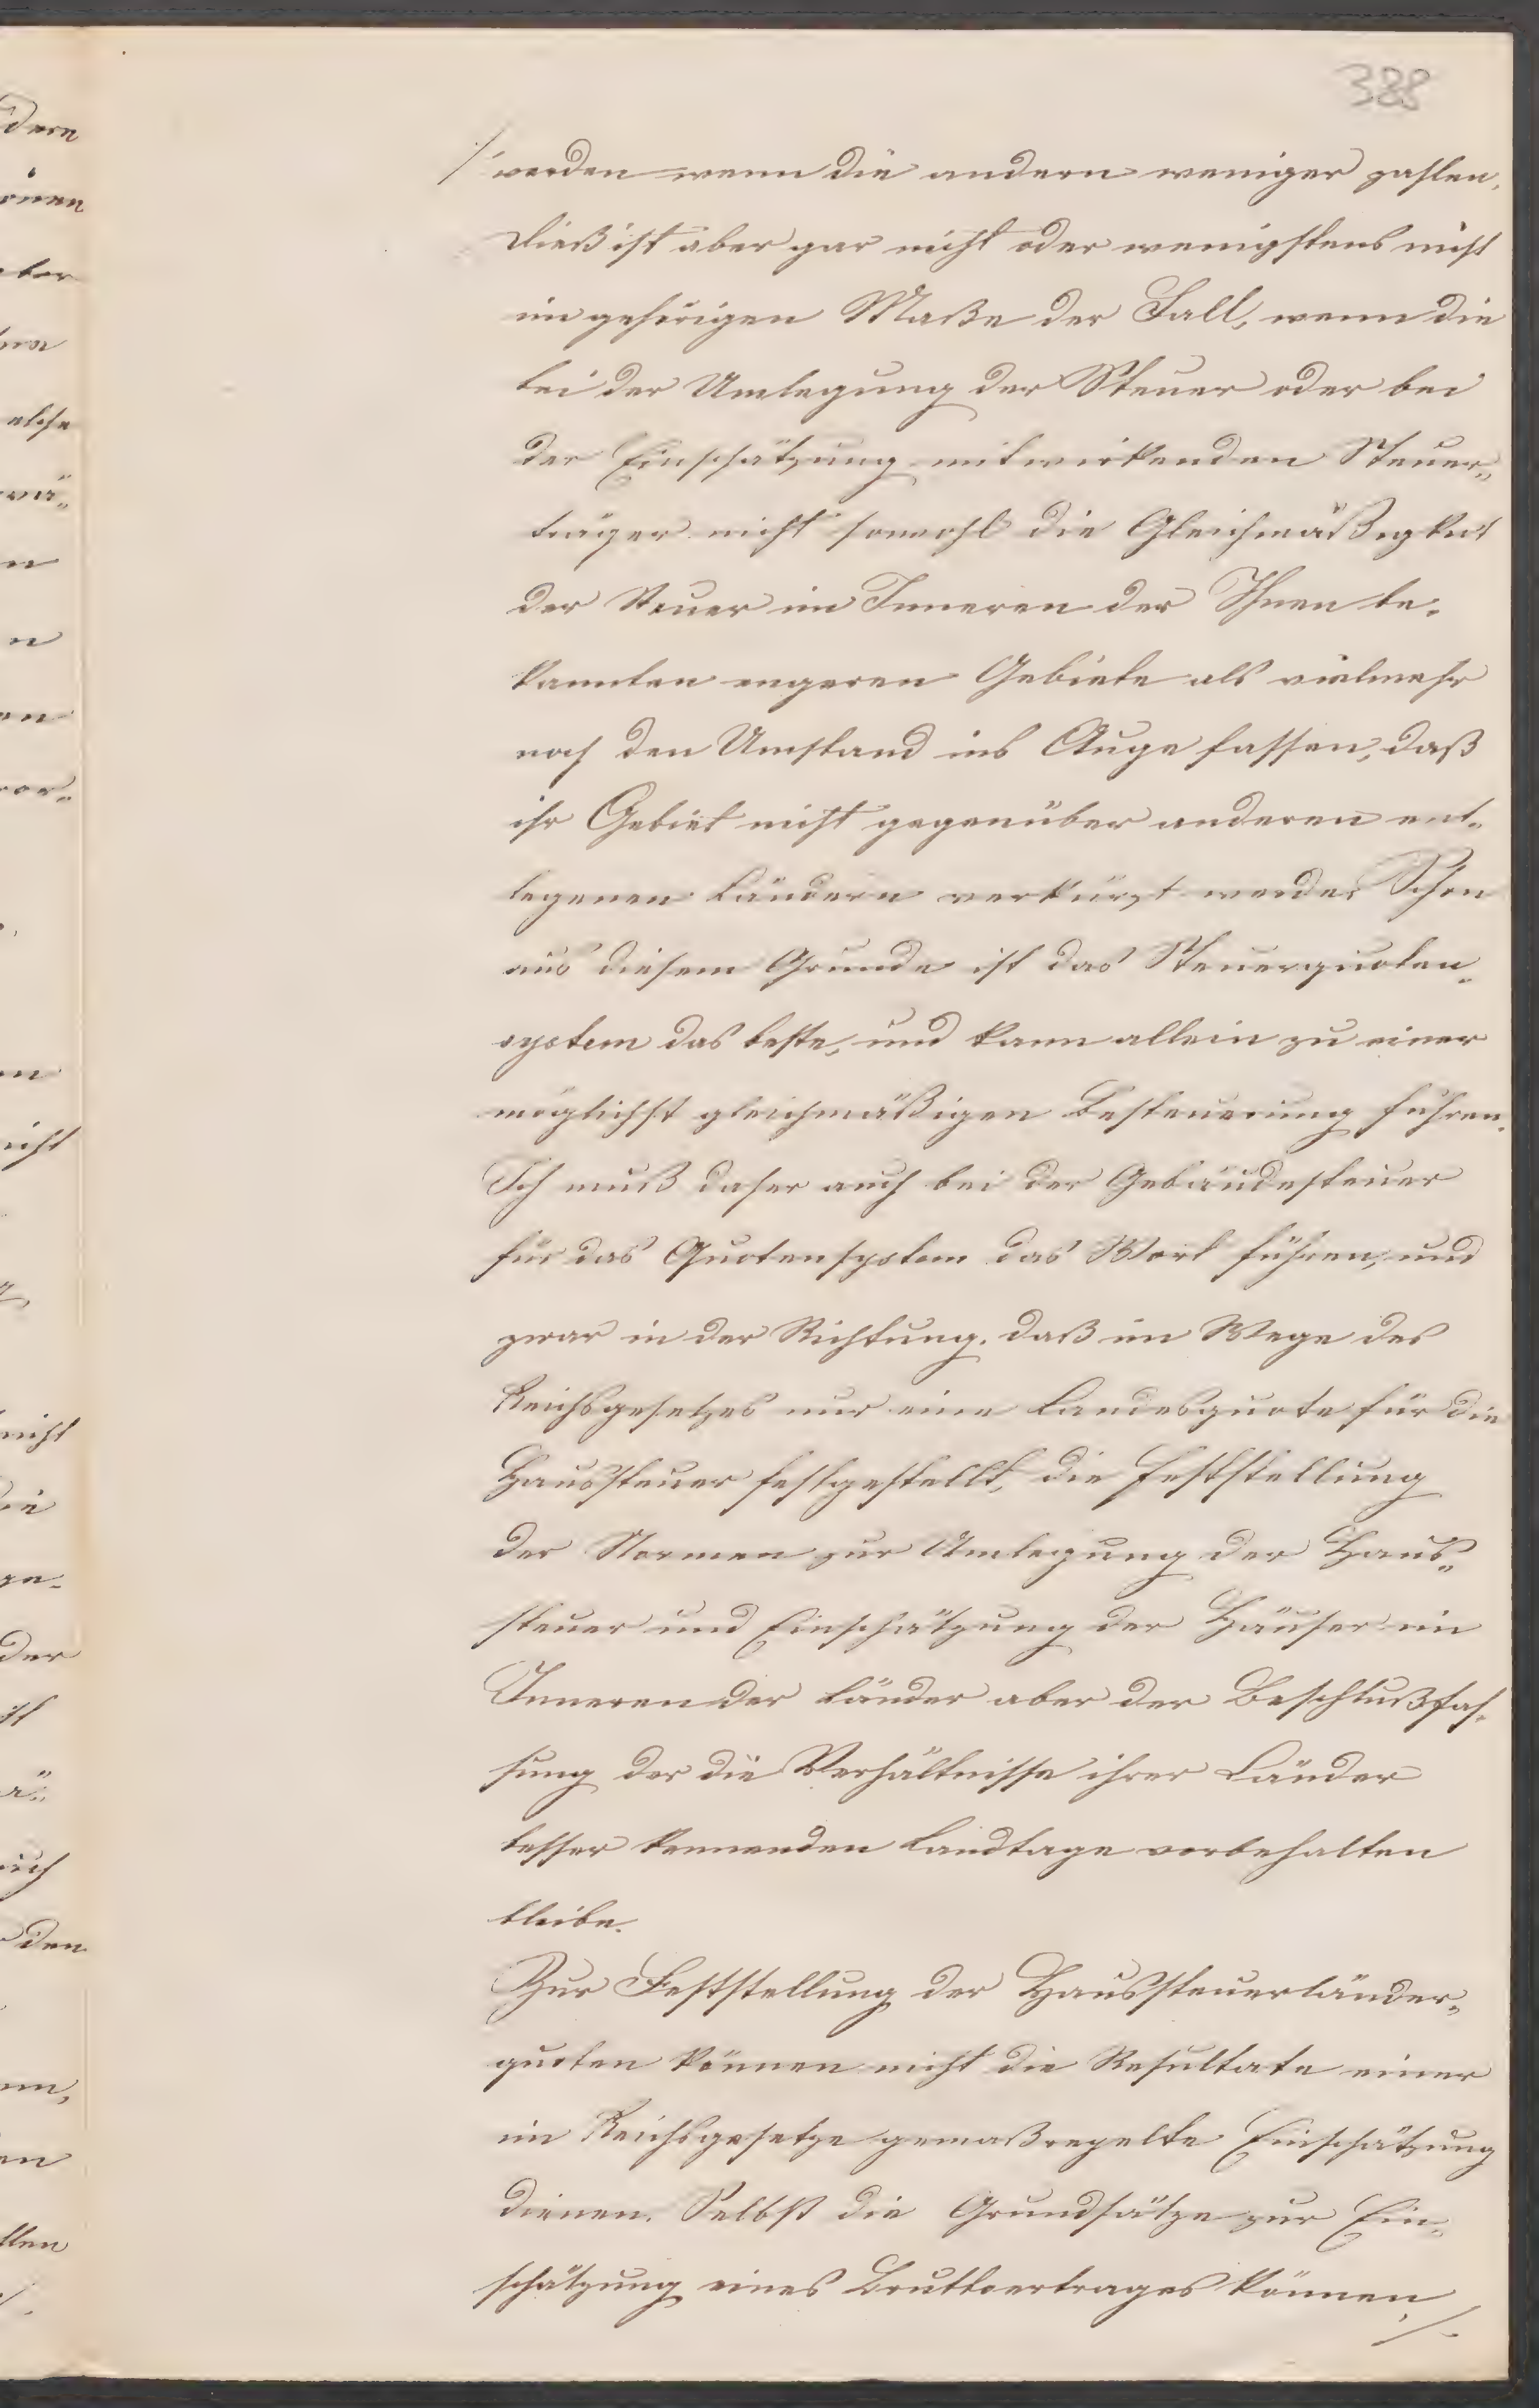 388
/ werden wenn die andern weniger zahlen.
Dieß ist aber gar nicht oder wenigstens nicht
im gehörigen Maße der Fall, wenn die
bei der Umlegung der Steuer oder bei
der Einschätzung mitwirkenden Steuer„
träger nicht sowohl die Gleichmäßigkeit
der Steuer im Inneren der Ihnen be„
kannten engeren Gebiete als vielmehr
noch den Umstand ins Auge fassen, daß
ihr Gebiet nicht gegenüber anderen ent„
legenen Ländern verkürzt werde. Schon
aus diesem Grunde ist das Steuerquoten„
system das beste, und kann allein zu einer
möglichst gleichmäßigen Besteuerung führen.
Ich muß daher auch bei der Gebäudesteuer
für das Quotensystem das Wort führen, und
zwar in der Richtung, daß im Wege des
Reichsgesetzes nur eine Landesquote für die
Haussteuer festgestellt, die Feststellung
der Normen zur Umlegung der Haus„
steuer und Einschätzung der Häuser im
Inneren der Länder aber der Beschlußfas„
sung der die Verhältnisse ihrer Länder
besser kennenden Landtage vorbehalten
bleibe.
Zur Feststellung der Haussteuerländer„
quoten können nicht die Resultate einer
im Reichsgesetze gemaßregelte Einschätzung
dienen. Selbst die Grundsätze zur Ein„
schätzung eines Bruttoertrages können
./.